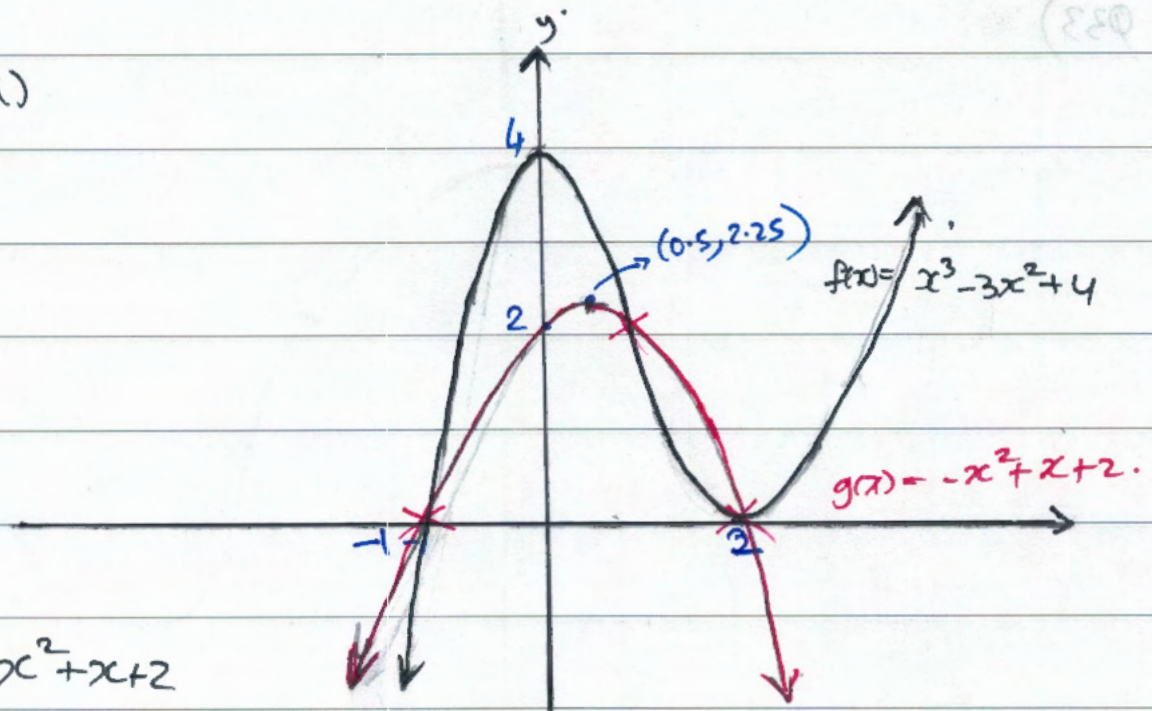 y
()
4
(0.5, 2.25)
f(x)= x³-3x²+4
2
g(x)= -x²+x+2.
-1
2
x²+x+2